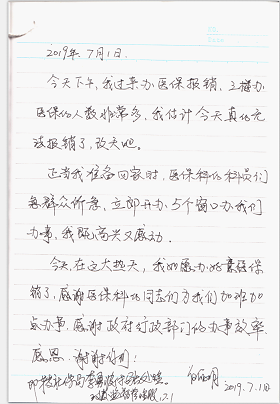 2019年.7月1日.
今天下午,我过来办医保报销,三楼办
医保的人数非常多,我估计今天真的无
法报销了,改天吧.
正当我准备回家时,医保科的科员们
急群众所急,立即开办5个窗口为我们
办事,我既高兴又感动.
今天,在这大热天,我如愿办好医保
销了,感谢医保科的同志们为我们加班加
点办事,感谢政府行政部门的办事效率.
感恩.谢谢你们!
2019.7.1日